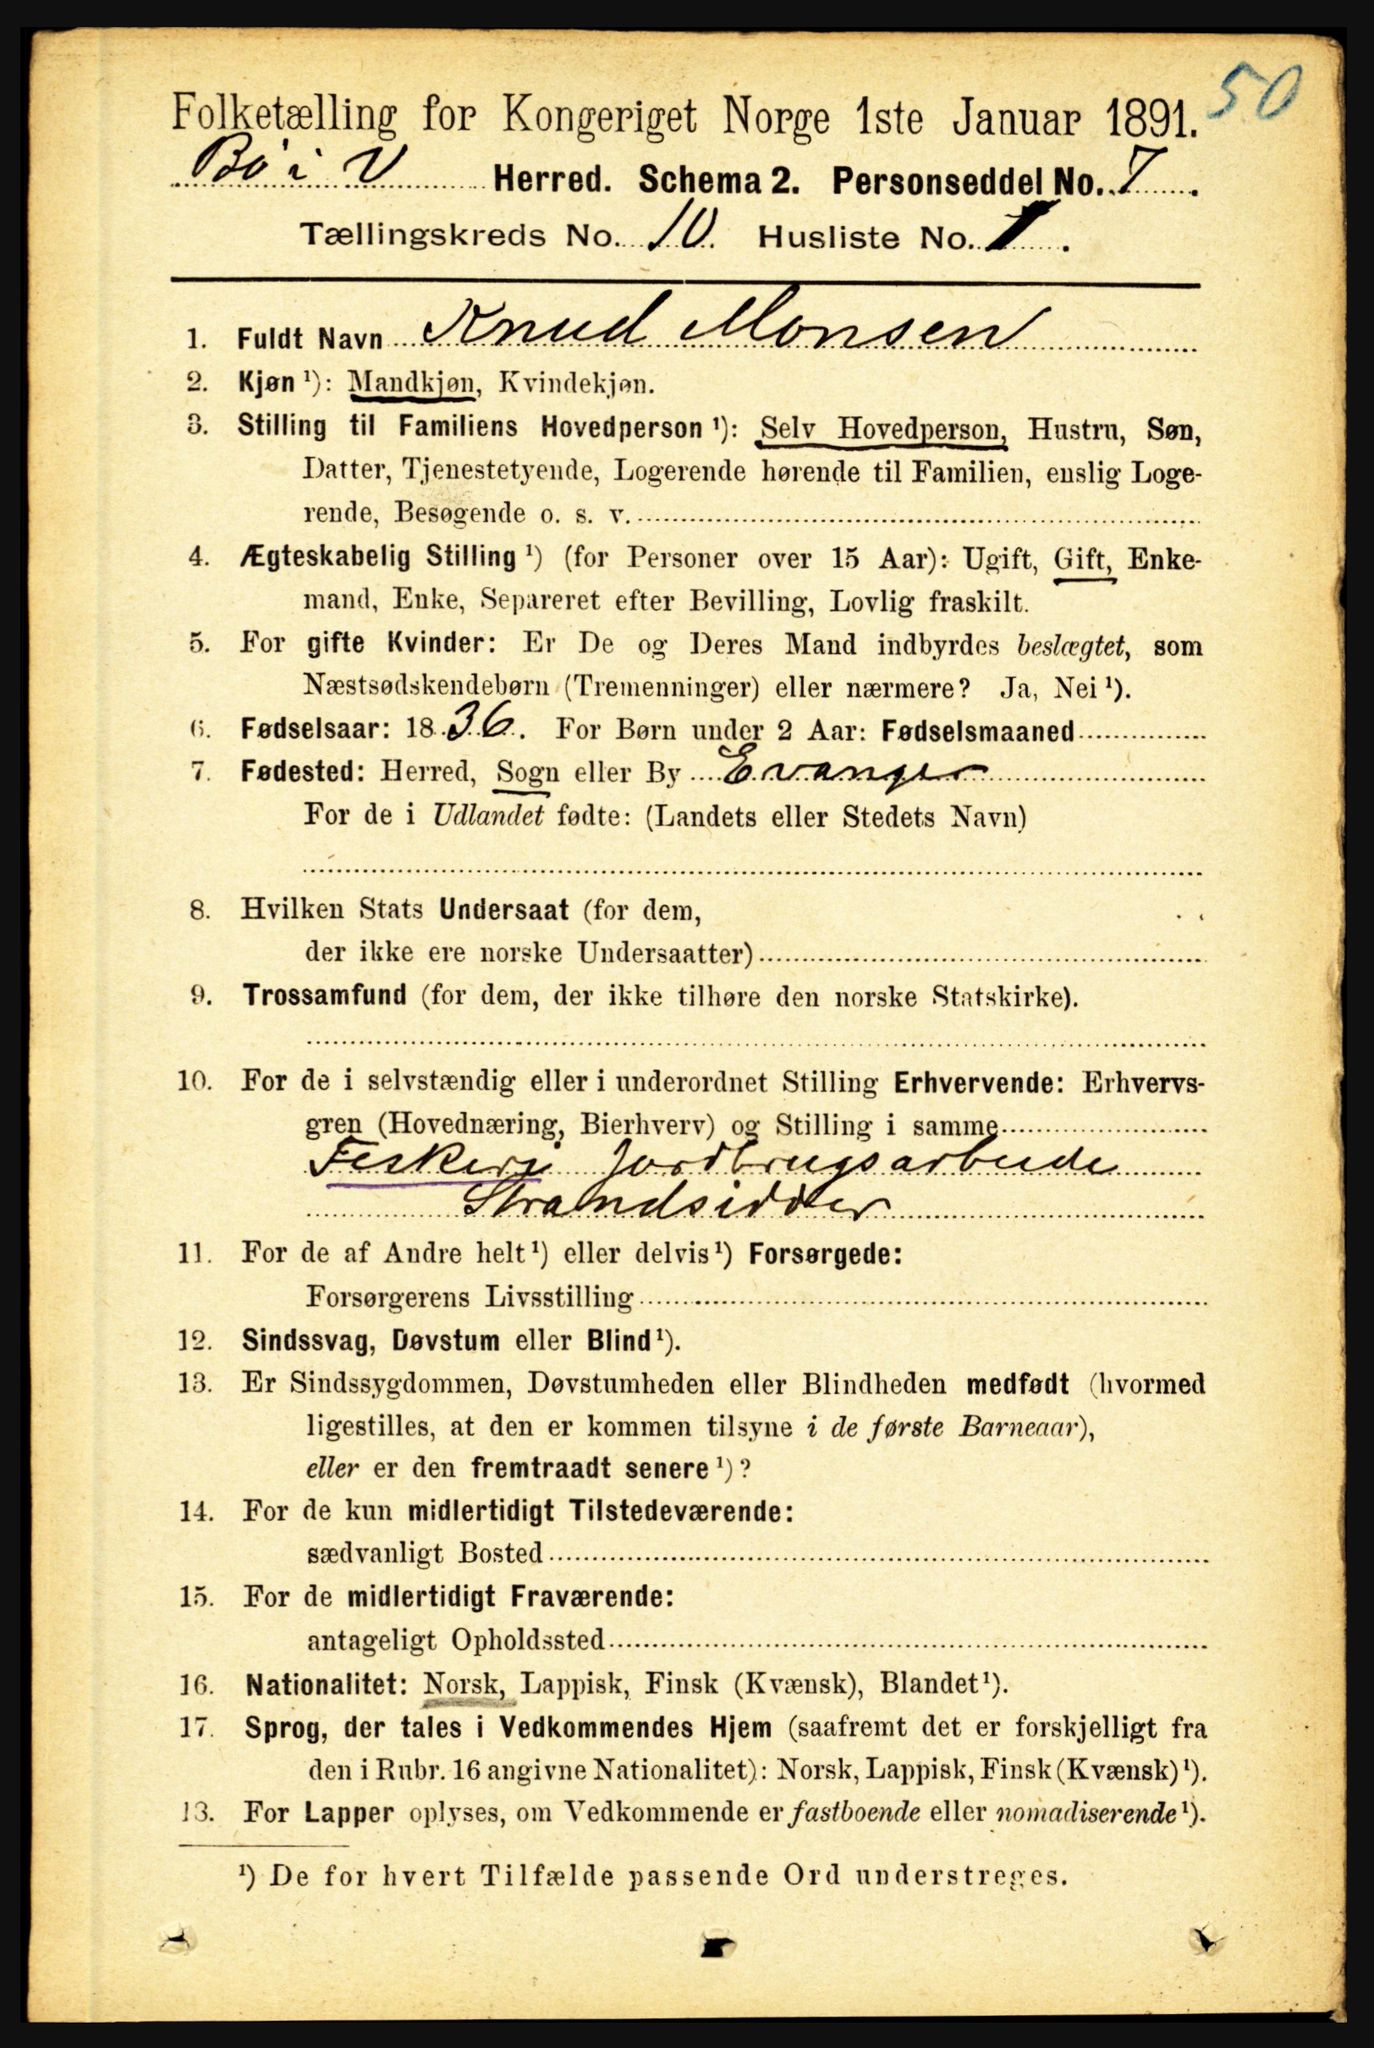 50
Folketælling for Kongeriget Norge 1ste Januar 1891.
Bø i V Herred. Schema 2. Personseddel No. 7.
Tællingskreds No. 10. Husliste No. 1.
1. Fuldt Navn Knud Monsen
2. Kjøn ¹): Mandkjøn, Kvindekjøn.
3. Stilling til Familiens Hovedperson ¹): Selv Hovedperson, Hustru, Søn,
Datter, Tjenestetyende, Logerende hørende til Familien, enslig Loge-
rende, Besøgende o. s. v.
4. Ægteskabelig Stilling ¹) (for Personer over 15 Aar): Ugift, Gift, Enke-
mand, Enke, Separeret efter Bevilling, Lovlig fraskilt.
5. For gifte Kvinder: Er De og Deres Mand indbyrdes beslægtet, som
Næstsødskendebørn (Tremenninger) eller nærmere? Ja, Nei ¹).
6. Fødselsaar: 1836. For Børn under 2 Aar: Fødselsmaaned
7. Fødested: Herred, Sogn eller By Evanger
For de i Udlandet fødte: (Landets eller Stedets Navn)
8. Hvilken Stats Undersaat (for dem,
der ikke ere norske Undersaatter)
9. Trossamfund (for dem, der ikke tilhøre den norske Statskirke).
10. For de i selvstændig eller i underordnet Stilling Erhvervende: Erhvervs-
gren (Hovednæring, Bierhverv) og Stilling i samme
Fiskeri Jordbrugsarbeide
Strandsidder
11. For de af Andre helt ¹) eller delvis ¹) Forsørgede:
Forsørgerens Livsstilling
12. Sindssvag, Døvstum eller Blind ¹).
13. Er Sindssygdommen, Døvstumheden eller Blindheden medfødt (hvormed
ligestilles, at den er kommen tilsyne i de første Barneaar),
eller er den fremtraadt senere ¹)?
14. For de kun midlertidigt Tilstedeværende:
sædvanligt Bosted
15. For de midlertidigt Fraværende:
antageligt Opholdssted
16. Nationalitet: Norsk, Lappisk, Finsk (Kvænsk), Blandet ¹).
17. Sprog, der tales i Vedkommendes Hjem (saafremt det er forskjelligt fra
den i Rubr. 16 angivne Nationalitet): Norsk, Lappisk, Finsk (Kvænsk) ¹).
13. For Lapper oplyses, om Vedkommende er fastboende eller nomadiserende ¹).
¹) De for hvert Tilfælde passende Ord understreges.